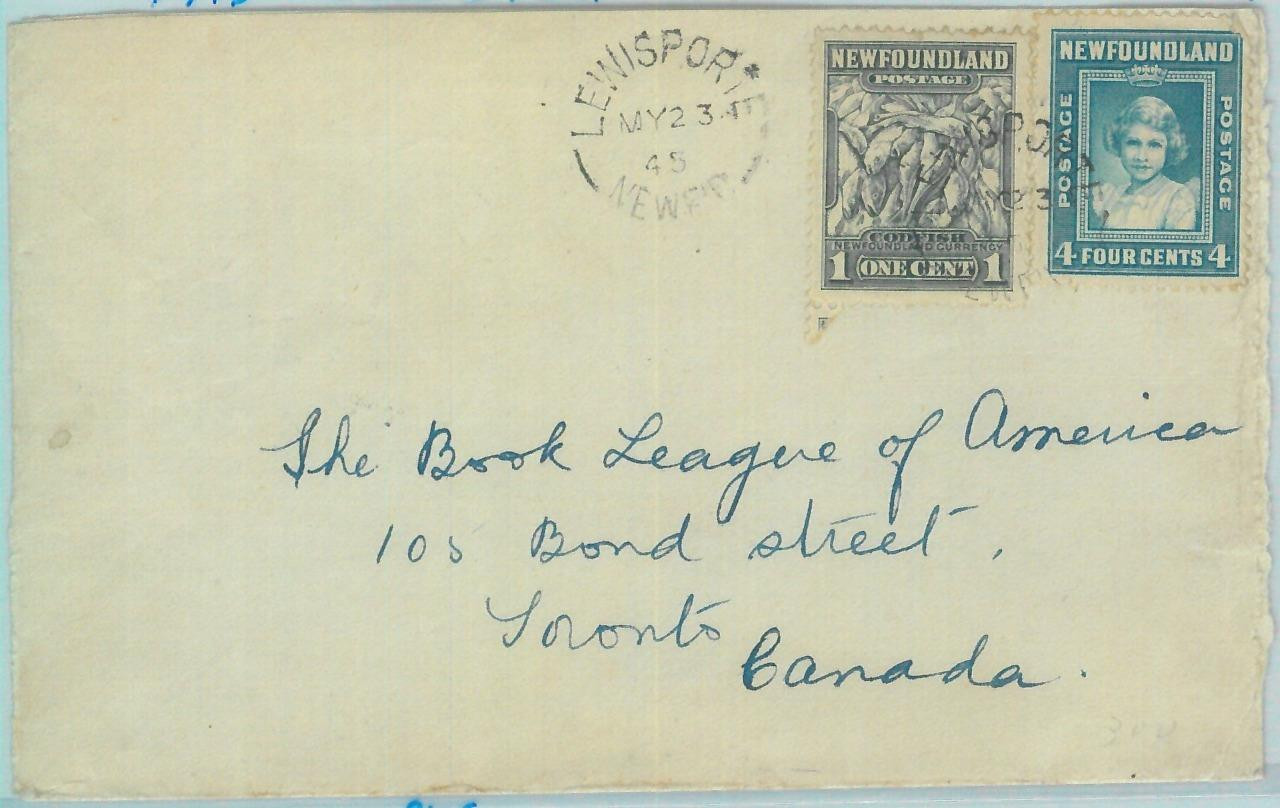 LEWISPORTE
MY 23
45
NEWF'D
NEWFOUNDLAND
POSTAGE
CODFISH
NEWFOUNDLAND CURRENCY
1 ONE CENT 1
NEWFOUNDLAND
POSTAGE
POSTAGE
4 FOUR CENTS 4
The Book League of America
105 Bond street,
Toronto
Canada.